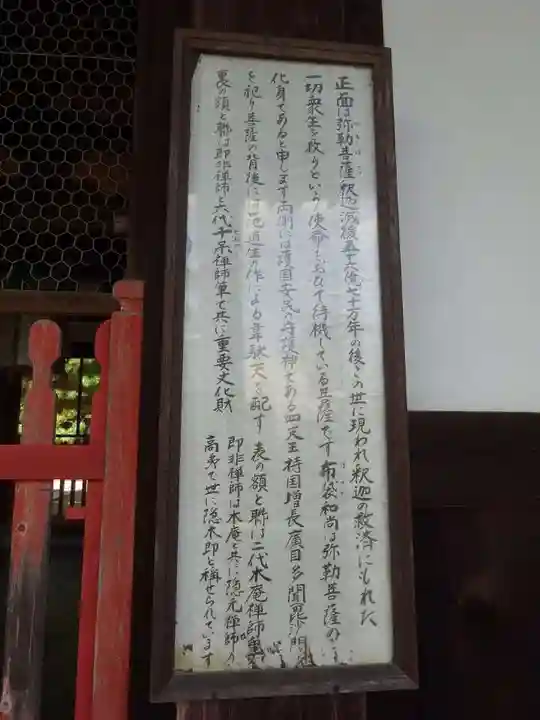 正面は弥勒菩薩釈迦滅後五十六億七千万年の後この世に現われ釈迦の救済にもれた
一切衆生を救うという使命をおびて待機している菩薩です 布袋和尚は弥勒菩薩の
化身であると申します両側には護国安民の守護神である四天王持国増長廣目多聞毘沙門
を祀り菩薩の背後には范道生の作による韋駄天を配す 表の額と聯は二代木庵禅師
裏の額と聯は即非禅師と六代千呆禅師筆で共に重要文化財
即非禅師は木庵と共に隠元禅師の
高弟で世に隠木即と称せられています